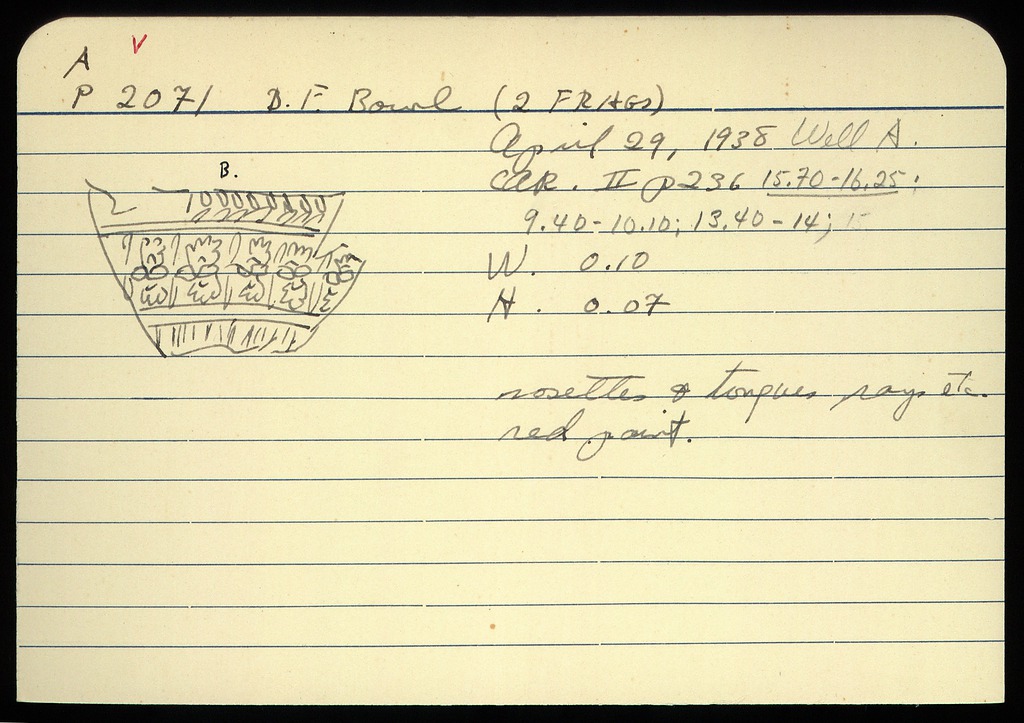 A V
P 2071 B.F. Bowl (2 FRAGS)
April 29, 1938 Well A.
B.
Cer. II p 236 15.70-16.25;
9.40-10.10; 13.40-14; 15
W. 0.10
H. 0.07
rosettes & tongues rays etc.
red paint.